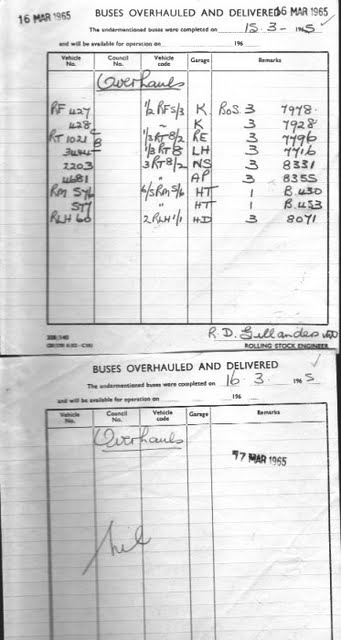 16 MAR 1965 BUSES OVERHAULED AND DELIVERED 16 MAR 1965
The undermentioned buses were completed on 15.3- 1965
and will be available for operation on 196
Vehicle No. Council No. Vehicle code Garage Remarks
Overhauls
RF 427 1/2 RF5/3 K BoS 3 7978.
428 " K 3 7928
RT 1021 1/3 RT8/2 RE 3 7796
3444 1/3 RT8 LH 3 7716
2203 3 RT8/2 NS 3 8331
4681 " AP 3 8355
RM 576 6/5 RM5/6 HT 1 B.430
577 " HT 1 B.453
RLH 60 2 RLH 1/1 HD 3 8071
R.D. Gillanders
ROLLING STOCK ENGINEER
BUSES OVERHAULED AND DELIVERED
The undermentioned buses were completed on 16 3. 1965
and will be available for operation on 196
Vehicle No. Council No. Vehicle code Garage Remarks
Overhauls
17 MAR 1965
Nil